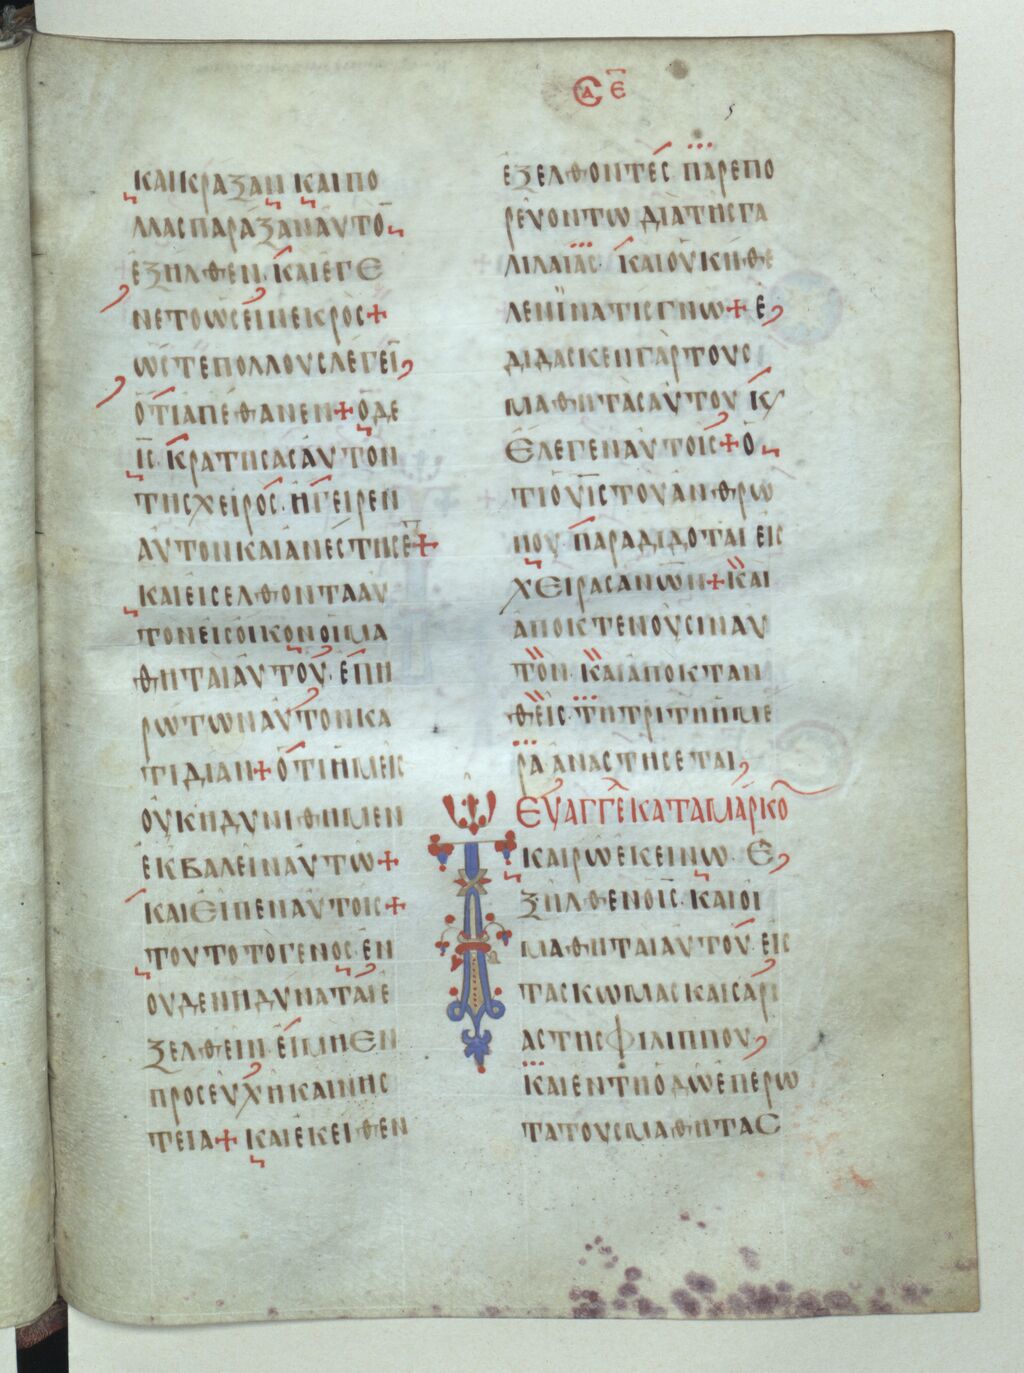 ϹΑ Ε̅
ΚΑΙΚΡΑΞΑΝ ΚΑΙΠΟ
ΛΛΑϹΠΑΡΑΞΑΝΑΥΤΟ̅
ἘΞΗΛΘΕΝ· ΚΑΙΕΓΕ
ΝΕΤΟΩϹΕΙΝΕΚΡΟϹ+
ΩϹΤΕΠΟΛΛΟΥϹΛΕΓΕΙ̅
ὉΤΙΑΠΕΘΑΝΕΝ+ὉΔΕ
Ι̅Ϲ̅ ΚΡΑΤΗϹΑϹΑΥΤΟΝ
ΤΗϹΧΕΙΡΟϹ· ΗΓΕΙΡΕΝ
ΑΥΤΟΝΚΑΙΑΝΕϹΤΗϹΕ̅+
ΚΑΙΕΙϹΕΛΘΟΝΤΑΑΥ
ΤΟΝΕΙϹΟΙΚΟΝΟΙΜΑ
ΘΗΤΑΙΑΥΤΟΥ· ΕΠΗ
ΡΩΤΩΝΑΥΤΟΝΚΑ
ΤΙΔΙΑΝ+ὉΤΙΗΜΕΙϹ
ΟΥΚΗΔΥΝΗΘΗΜΕΝ
ΕΚΒΑΛΕΙΝΑΥΤΩ+
ΚΑΙΕΙΠΕΝΑΥΤΟΙϹ+
ΤΟΥΤΟΤΟΓΕΝΟϹ· ΕΝ
ΟΥΔΕΝΗΔΥΝΑΤΑΙΕ
ΞΕΛΘΕΙΝ· ΕΙΜΗΕΝ
ΠΡΟϹΕΥΧΗΚΑΙΝΗϹ
ΤΕΙΑ+ ΚΑΙΕΚΕΙΘΕΝ
ΕΞΕΛΘΟΝΤΕϹ ΠΑΡΕΠΟ
ΡΕΥΟΝΤΩ ΔΙΑΤΗϹΓΑ
ΛΙΛΑΙΑϹ· ΚΑΙΟΥΚΗΘΕ
ΛΕΝΪΝΑΤΙϹΓΝΩ+ Ε
ΔΙΔΑϹΚΕΝΓΑΡΤΟΥϹ
ΜΑΘΗΤΑϹΑΥΤΟΥ Κ/
ΕΛΕΓΕΝΑΥΤΟΙϹ+Ὁ
ΤΙΟΥ̅Ϲ̅ΤΟΥΑΝΘΡΩ
ΠΟΥ· ΠΑΡΑΔΙΔΟΤΑΙ ΕΙϹ
ΧΕΙΡΑϹΑΝΩ̅Ν+ΚΑΙ
ΑΠΟΚΤΕΝΟΥϹΙΝΑΥ
ΤΟΝ· ΚΑΙΑΠΟΚΤΑΝ
ΘΕΙϹ· ΤΗΤΡΙΤΗΗΜΕ
ΡΑ ΑΝΑϹΤΗϹΕΤΑΙ
ΕΥΑΓΓΕ ΚΑΤΑΜΑΡΚΟ̅
ΤΚΑΙΡΩΕΚΕΙΝΩ· Ε
ΞΗΛΘΕΝΟΙ̅Ϲ̅· ΚΑΙΟΙ
ΜΑΘΗΤΑΙΑΥΤΟΥ· ΕΙϹ
ΤΑϹΚΩΜΑϹΚΑΙϹΑΡΙ
ΑϹΤΗϹΦΙΛΙΠΠΟΥ
ΚΑΙΕΝΤΗΟΔΩΕΠΕΡΩ
ΤΑΤΟΥϹΜΑΘΗΤΑϹ